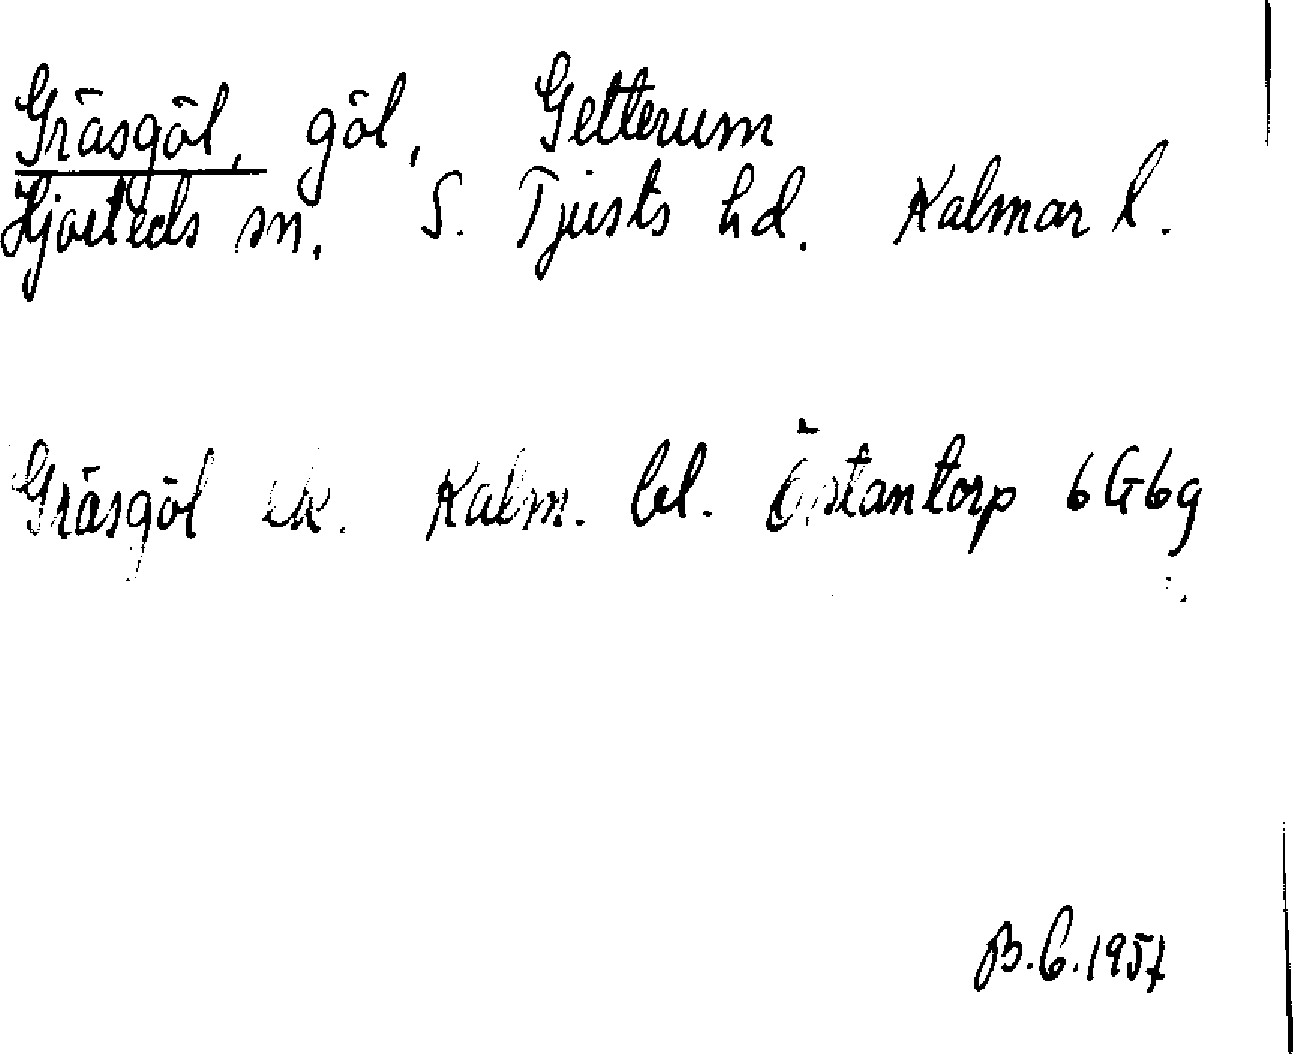 Gräsgöl, göl, Getterum
Hjorteds sn. S. Tjusts hd. Kalmar l.
Gräsgöl ek. Kalm. bl. Östantorp 6G6g
B.C.1957